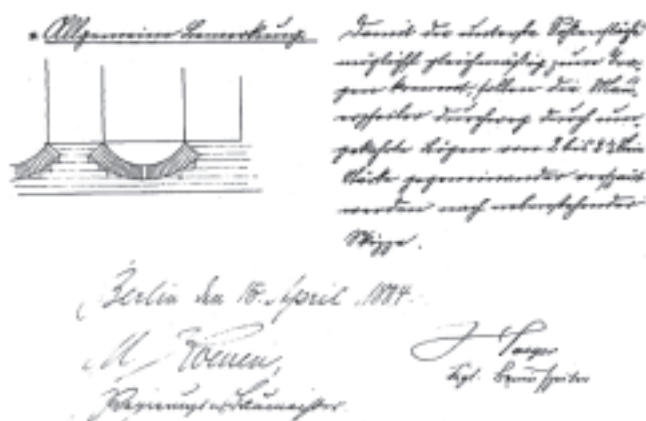 Allgemeine Bemerkung
Damit die unterste Sohlenfläche
möglichst gleichmässig zum Tra-
gen kommt, sollen die Mau-
erpfeiler durchweg durch um-
gekehrte Bögen von 2 bis 2½ Stein
Stärke gegeneinander verspannt
werden nach nebenstehender
Skizze.
Berlin den 18. April 1884.
M. Koenen,
Regierungs-Baumeister.
Jaeger
Kgl.